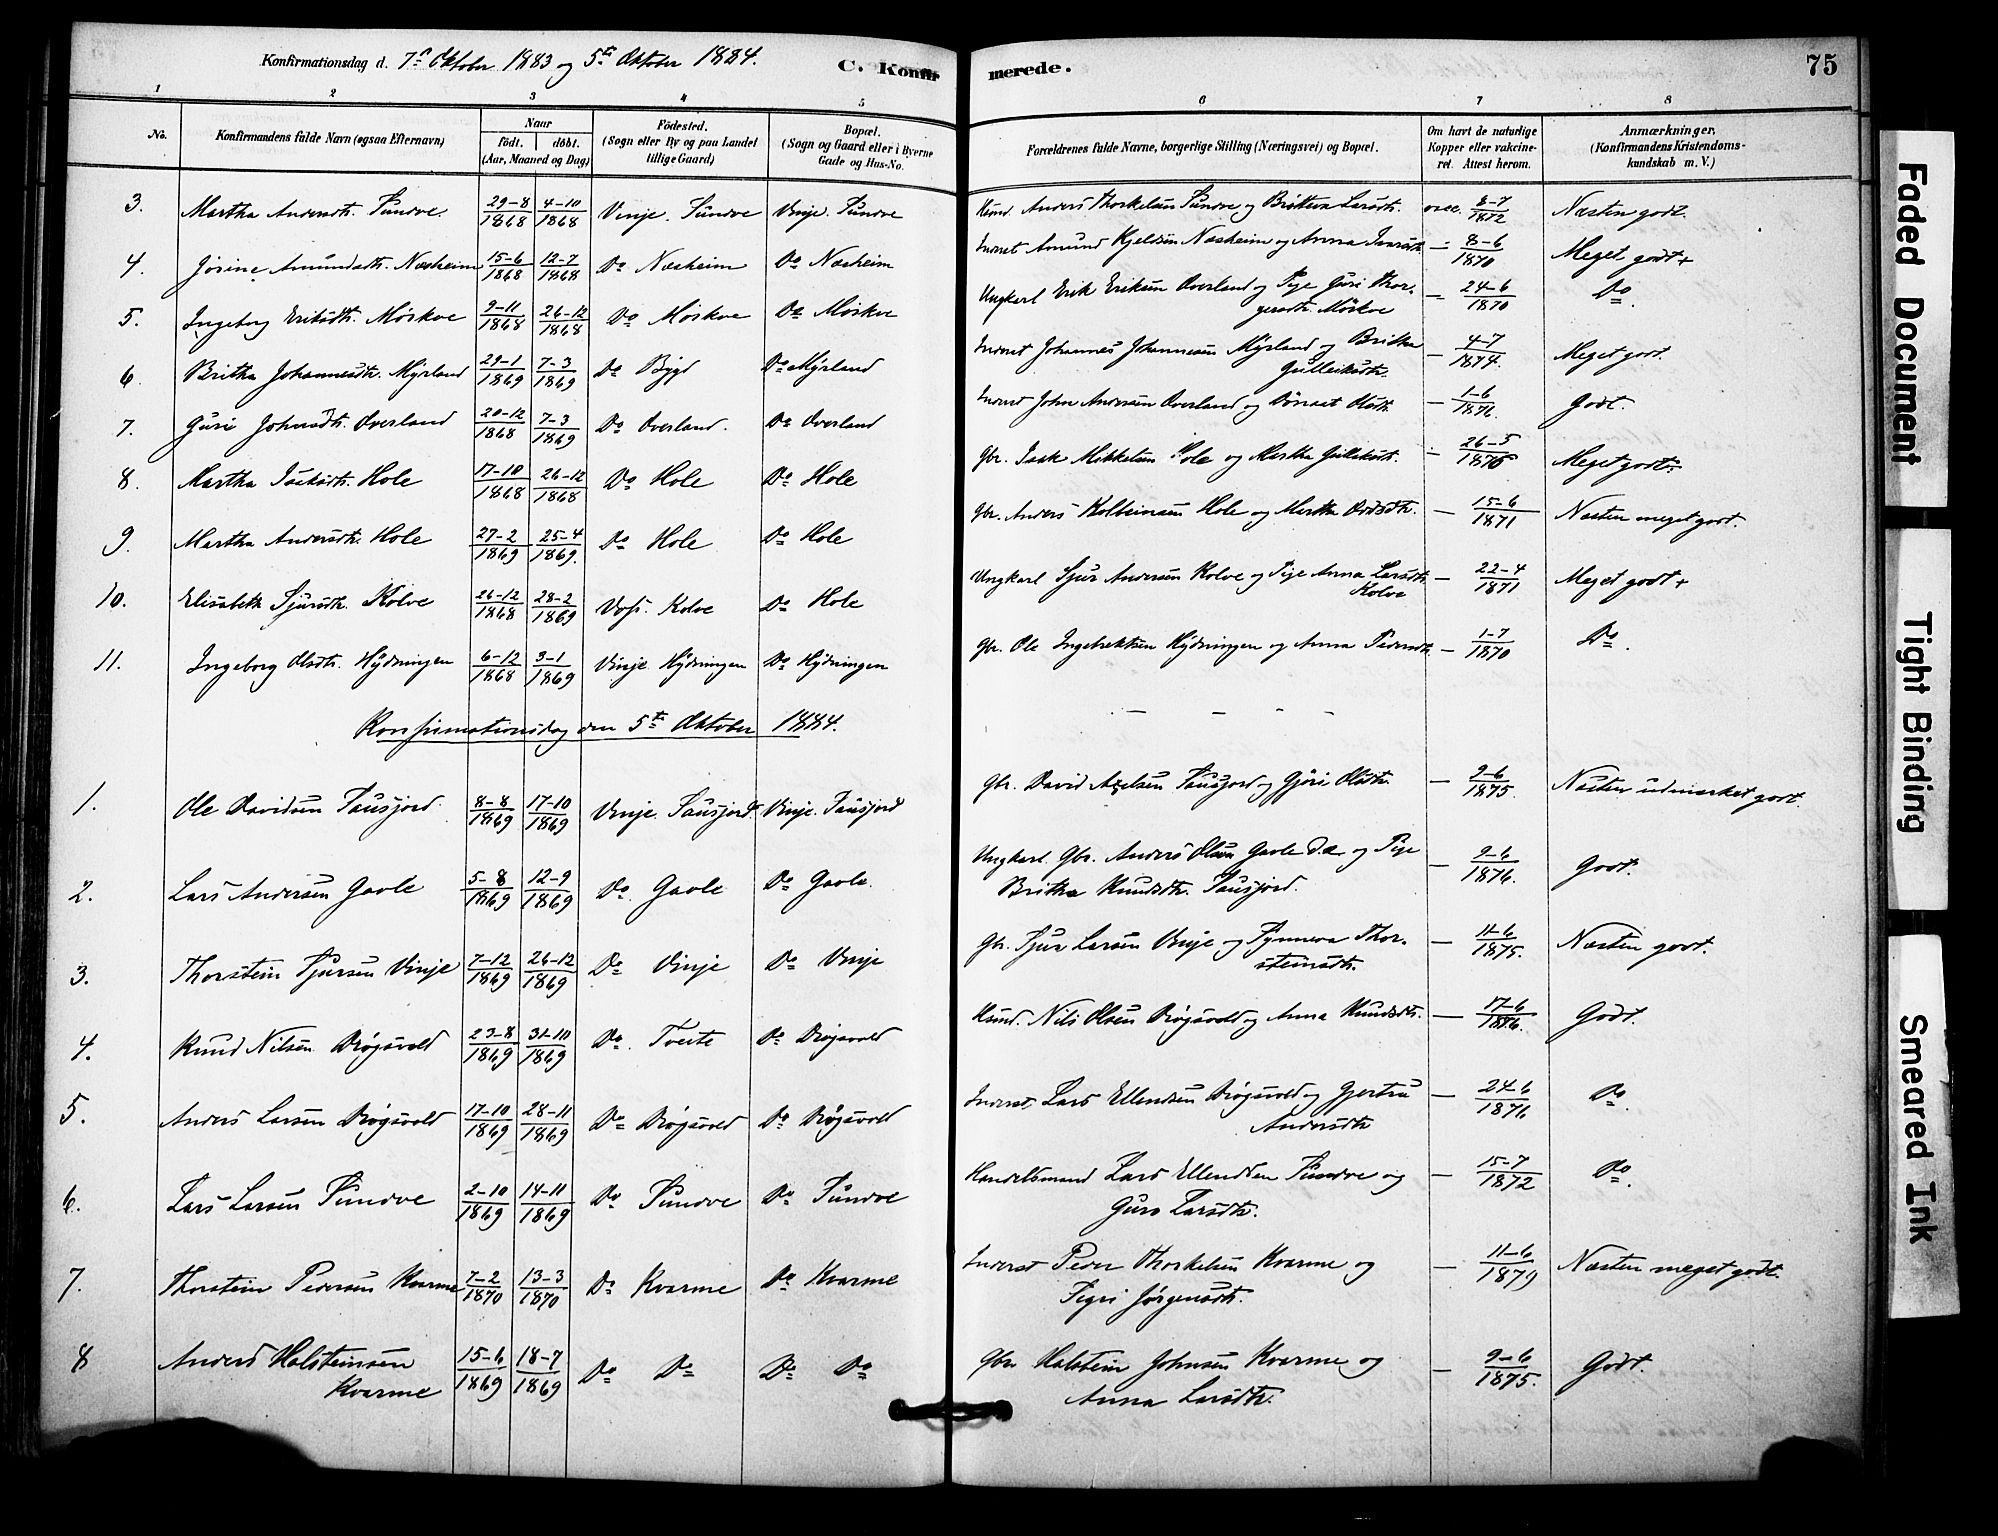 Konfirmationsdag d. 7de Oktober 1883 og 5te Oktober 1884.
C. Konfirmerede.
75
1 2 3 4 5 6 7 8
No.
Konfirmandens fulde Navn (ogsaa Efternavn)
Naar
födt. döbt.
(Aar, Maaned og Dag)
Födested.
(Sogn eller By og paa Landet
tillige Gaard)
Bopæl.
(Sogn og Gaard eller i Byerne
Gade og Hus-No.
Forældrenes fulde Navne, borgerlige Stilling (Næringsvei) og Bopæl.
Om havt de naturlige
Kopper eller vakcine-
ret. Attest herom.
Anmærkninger.
(Konfirmandens Kristendoms-
kundskab m. V.)
3. Martha Andersdtr. Sundve. 29-8 1868 4-10 1868 Vinje. Sundve Vinje. Sundve Anders Thorkelsen Sundve og Britteva Larsdtr. vacc. 8-7 1872 Næsten godt.
4. Jorine Amundsdtr. Næsheim 15-6 1868 12-7 1868 Do Næsheim Do Næsheim Inderst Amund Kjeldsen Næsheim og Anna Ivarsdtr. — 8-6 1870 Meget godt+
5. Ingeborg Eriksdtr. Mörkve 9-11 1868 26-12 1868 Do Mörkve Do Mörkve Ungkarl Erik Eriksen Overland og Pige Guri Thor-
gersdtr. Mörkve — 24-6 1870 Do.
6. Britha Johannesdtr. Myrland 29-1 1869 7-3 1869 Do Bygd Do Myrland Inderst Johannes Johannesen Myrland og Britha
Gulleiksdtr. — 4-7 1874. Meget godt.
7. Guri Johnsdtr. Overland 20-12 1868 7-3 1869 Do Overland. Do Overland Inderst John Andersen Overland og Dönaet Olsdtr. — 1-6 1876. Godt.
8. Martha Isaksdtr. Hole 17-10 1868 26-12 1868 Do Hole Do Hole Gbr. Isak Mikkelsen Hole og Martha Gulleiksdtr. — 26-5 1876 Meget godt÷
9. Martha Andersdtr. Hole 27-2 1869 25-4 1869. Do Hole Do Hole Gbr. Anders Kolbeinsen Hole og Martha Oddsdtr. — 15-6 1871 Næsten meget godt.
10. Elisabeth Sjursdtr. Kolve 26-12 1868 28-2 1869 Voss. Kolve Do Hole Ungkarl Sjur Andersen Kolve og Pige Anna Larsdtr.
Kolve — 22-4 1871 Meget godt+
11. Ingeborg Olsdtr. Hydningen 6-12 1868 3-1 1869 Vinje. Hydningen Do Hydningen Gbr. Ole Ingebrektsen Hydningen og Anna Pedersdtr. — 1-7 1870 Do.
Konfirmationsdag den 5te Oktober 1884.
1. Ole Davidsen Sausjord. 8-8 1869 17-10 1869 Vinje. Sausjord. Vinje. Sausjord Gbr. David Axelsen Sausjord og Gjöri Olsdtr. — 9-6 1875. Næsten udmærket godt.
2. Lars Andersen Gavle 5-8 1869 12-9 1869 Do. Gavle Do Gavle. Ungkarl Gbr. Anders Olsen Gavle d.æ. og Pige
Britha Knudsdtr. Sausjord. — 9-6 1876. Godt.
3. Thorstein Sjursen Vinje 7-12 1869 26-12 1869 Do Vinje Do Vinje Gbr. Sjur Larsen Vinje og Synneva Thor-
steinsdtr. — 11-6 1875. Næsten godt.
4. Knud Nilsen Drögsvold 23-8 1869 31-10 1869 Do. Tveite Do Drögsvold Husmd. Nils Olsen Drögsvold og Anna Knudsdtr. — 17-6 1876. Godt.
5. Anders Larsen Drögsvold 17-10 1869 28-11 1869 Do Drögsvold Do Drögsvold Inderst Lars Ellendsen Drögsvold og Gjertru
Andersdtr — 24-6 1876 Do.
6. Lars Larsen Sundve 2-10 1869 14-11 1869 Do Sundve Do Sundve Handelsmand Lars Ellendsen Sundve og
Guro Larsdtr. — 15-7 1872 Do.
7. Thorstein Pedersen Kvarme 7-2 1870 13-3 1870 Do Kvarme Do Kvarme Inderst Peder Thorkelsen Kvarme og
Sigri Jörgensdtr. — 11-6 1879 Næsten meget godt.
8 Anders Holsteinsen
Kvarme 15-6 1869 18-7 1869 Do Do Do Do Gbr. Holstein Johnsen Kvarme og
Anna Larsdtr. — 9-6 1875. Godt.
Faded Document
Tight Binding
Smeared Ink